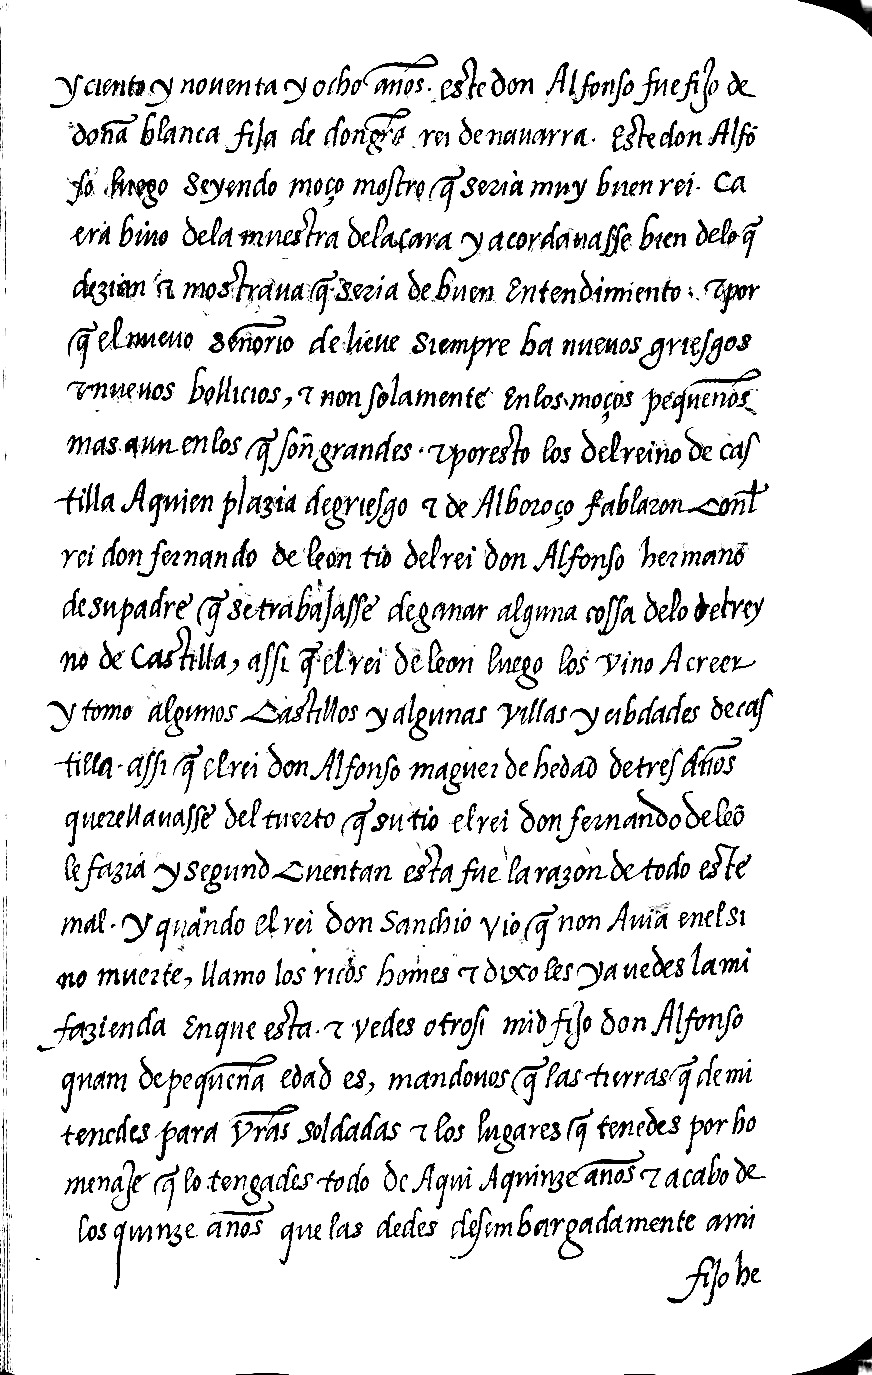 y ciento y noventa y ocho años. este don Alfonso fue fijo de
doña blanca fija de dongr̃a rei de navarra. Este don Alfõ
so luego seyendo moço mostro q̃ seria muy buen rei. Ca
era bivo dela muestra dela cara y acordavasse bien delo q̃
dezian τ mostrava q̃ seria de buen Entendimiento. τ por
q̃ el nuevo señorio de lieve siempre ha nuevos griesgos
τ nuevos bollicios, τ non solamente Enlos moços pequeños
mas aun enlos q̃ soñ grandes. τ poresto los delreino de cas
tilla Aquien plazia degriesgo τ de Alboroço fablaron Conl̃
rei don fernando de leon tio delrei don Alfonso hermanõ
desupadre q̃ se trabajasse deganar alguna cossa delo delrey
no de Castilla, assi q̃ el rei de leon luego los vino A creer
y tomo algunos Castillos y algunas villas y cibdades de cas
tilla. assi q̃ el rei don Alfonso maguer de hedad detres Años
querellavasse del tuerto q̃ su tio el rei don fernando de leõ
le fazia y segund Cuentan esta fue la razon de todo este
mal. y quando el rei don Sanchio vio q̃ non Avia enel si
no muerte, llamo los ricos homes τ dixo les ya vedes la mi
fazienda Enque esta. τ vedes otrosi mio fijo don Alfonso
quam depequeña edad es, mandovos q̃ las tierras q̃ de mi
tenedes para vr̃as soldadas τ los lugares q̃ tenedes por ho
menaje q̃ lo tengades todo de Aqui Aquinze años τ acabo de
los quinze años que las dedes desembargadamente ami
fijo he